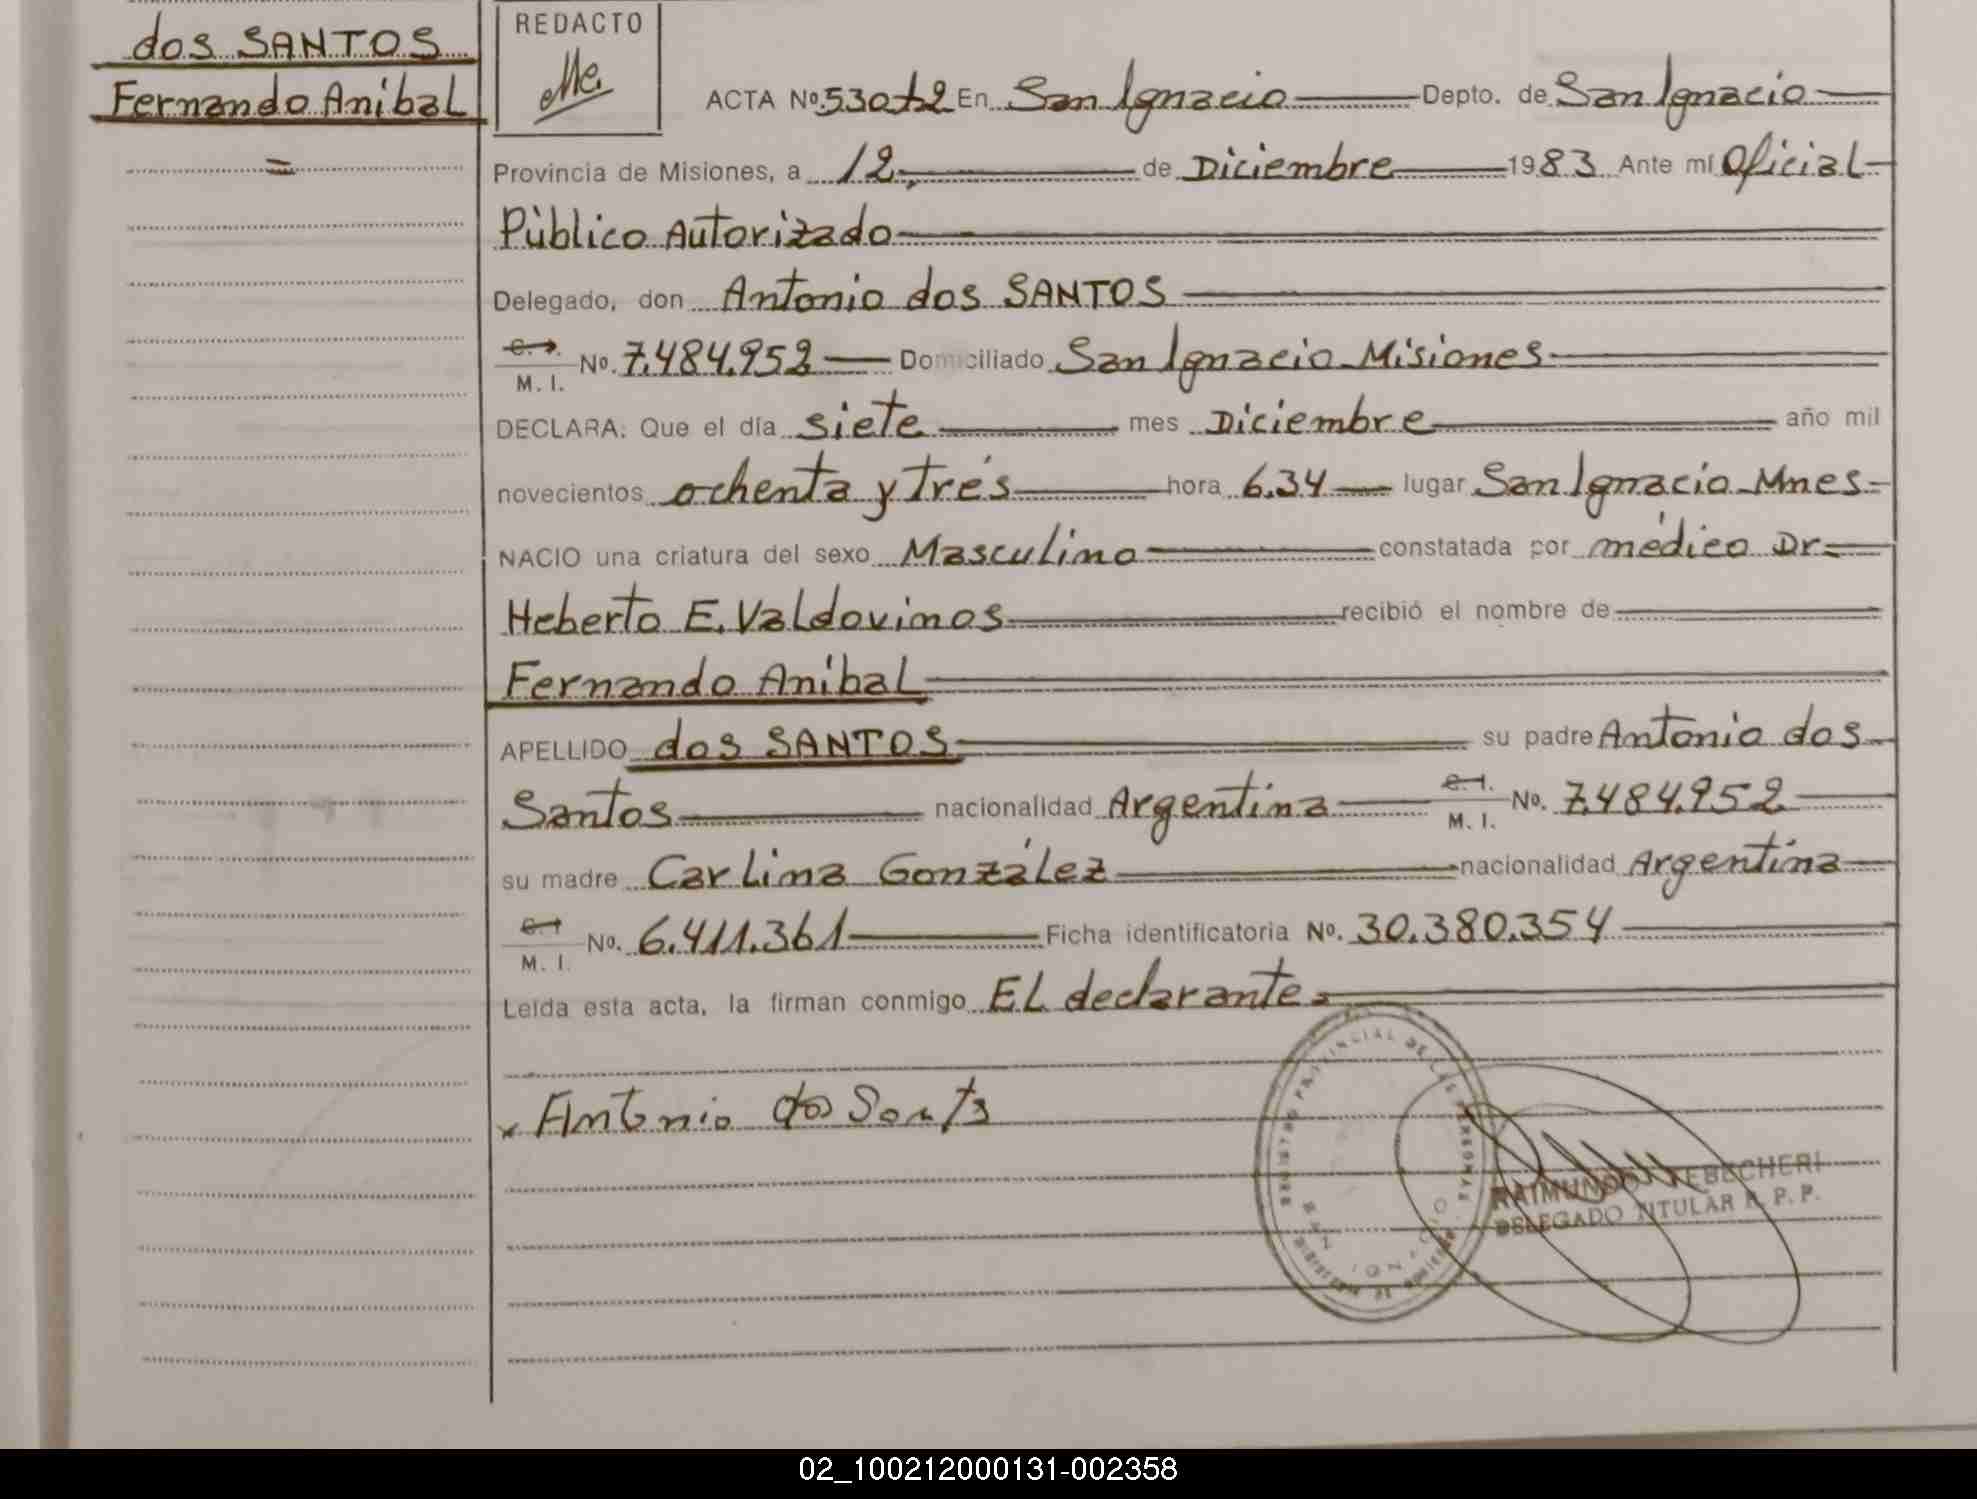 dos SANTOS
Fernando Anibal
=
REDACTO
ACTA Nº 530 t2 En San Ignacio Depto. de San Ignacio
Provincia de Misiones, a 12, de Diciembre 1983 Ante mí Oficial
Público Autorizado
Delegado, don Antonio dos SANTOS
M. I. Nº. 7.484.952 Domiciliado San Ignacio Misiones
DECLARA: Que el día siete mes Diciembre año mil
novecientos ochenta y trés hora 6.34 lugar San Ignacio Mnes
NACIO una criatura del sexo Masculino constatada por médico Dr
Heberto E. Valdovinos recibió el nombre de
Fernando Anibal
APELLIDO dos SANTOS su padre Antonio dos
Santos nacionalidad Argentina M. I. Nº. 7.484.952
su madre Carlina González nacionalidad Argentina
M. I. Nº. 6.411.361 Ficha identificatoria Nº. 30.380.354
Leída esta acta, la firman conmigo El declarante.
x Antonio dos Sants
REGISTRO PROVINCIAL DE LAS PERSONAS
SAN IGNACIO
RAIMUNDO
DELEGADO TITULAR R. P. P.
02_100212000131-002358